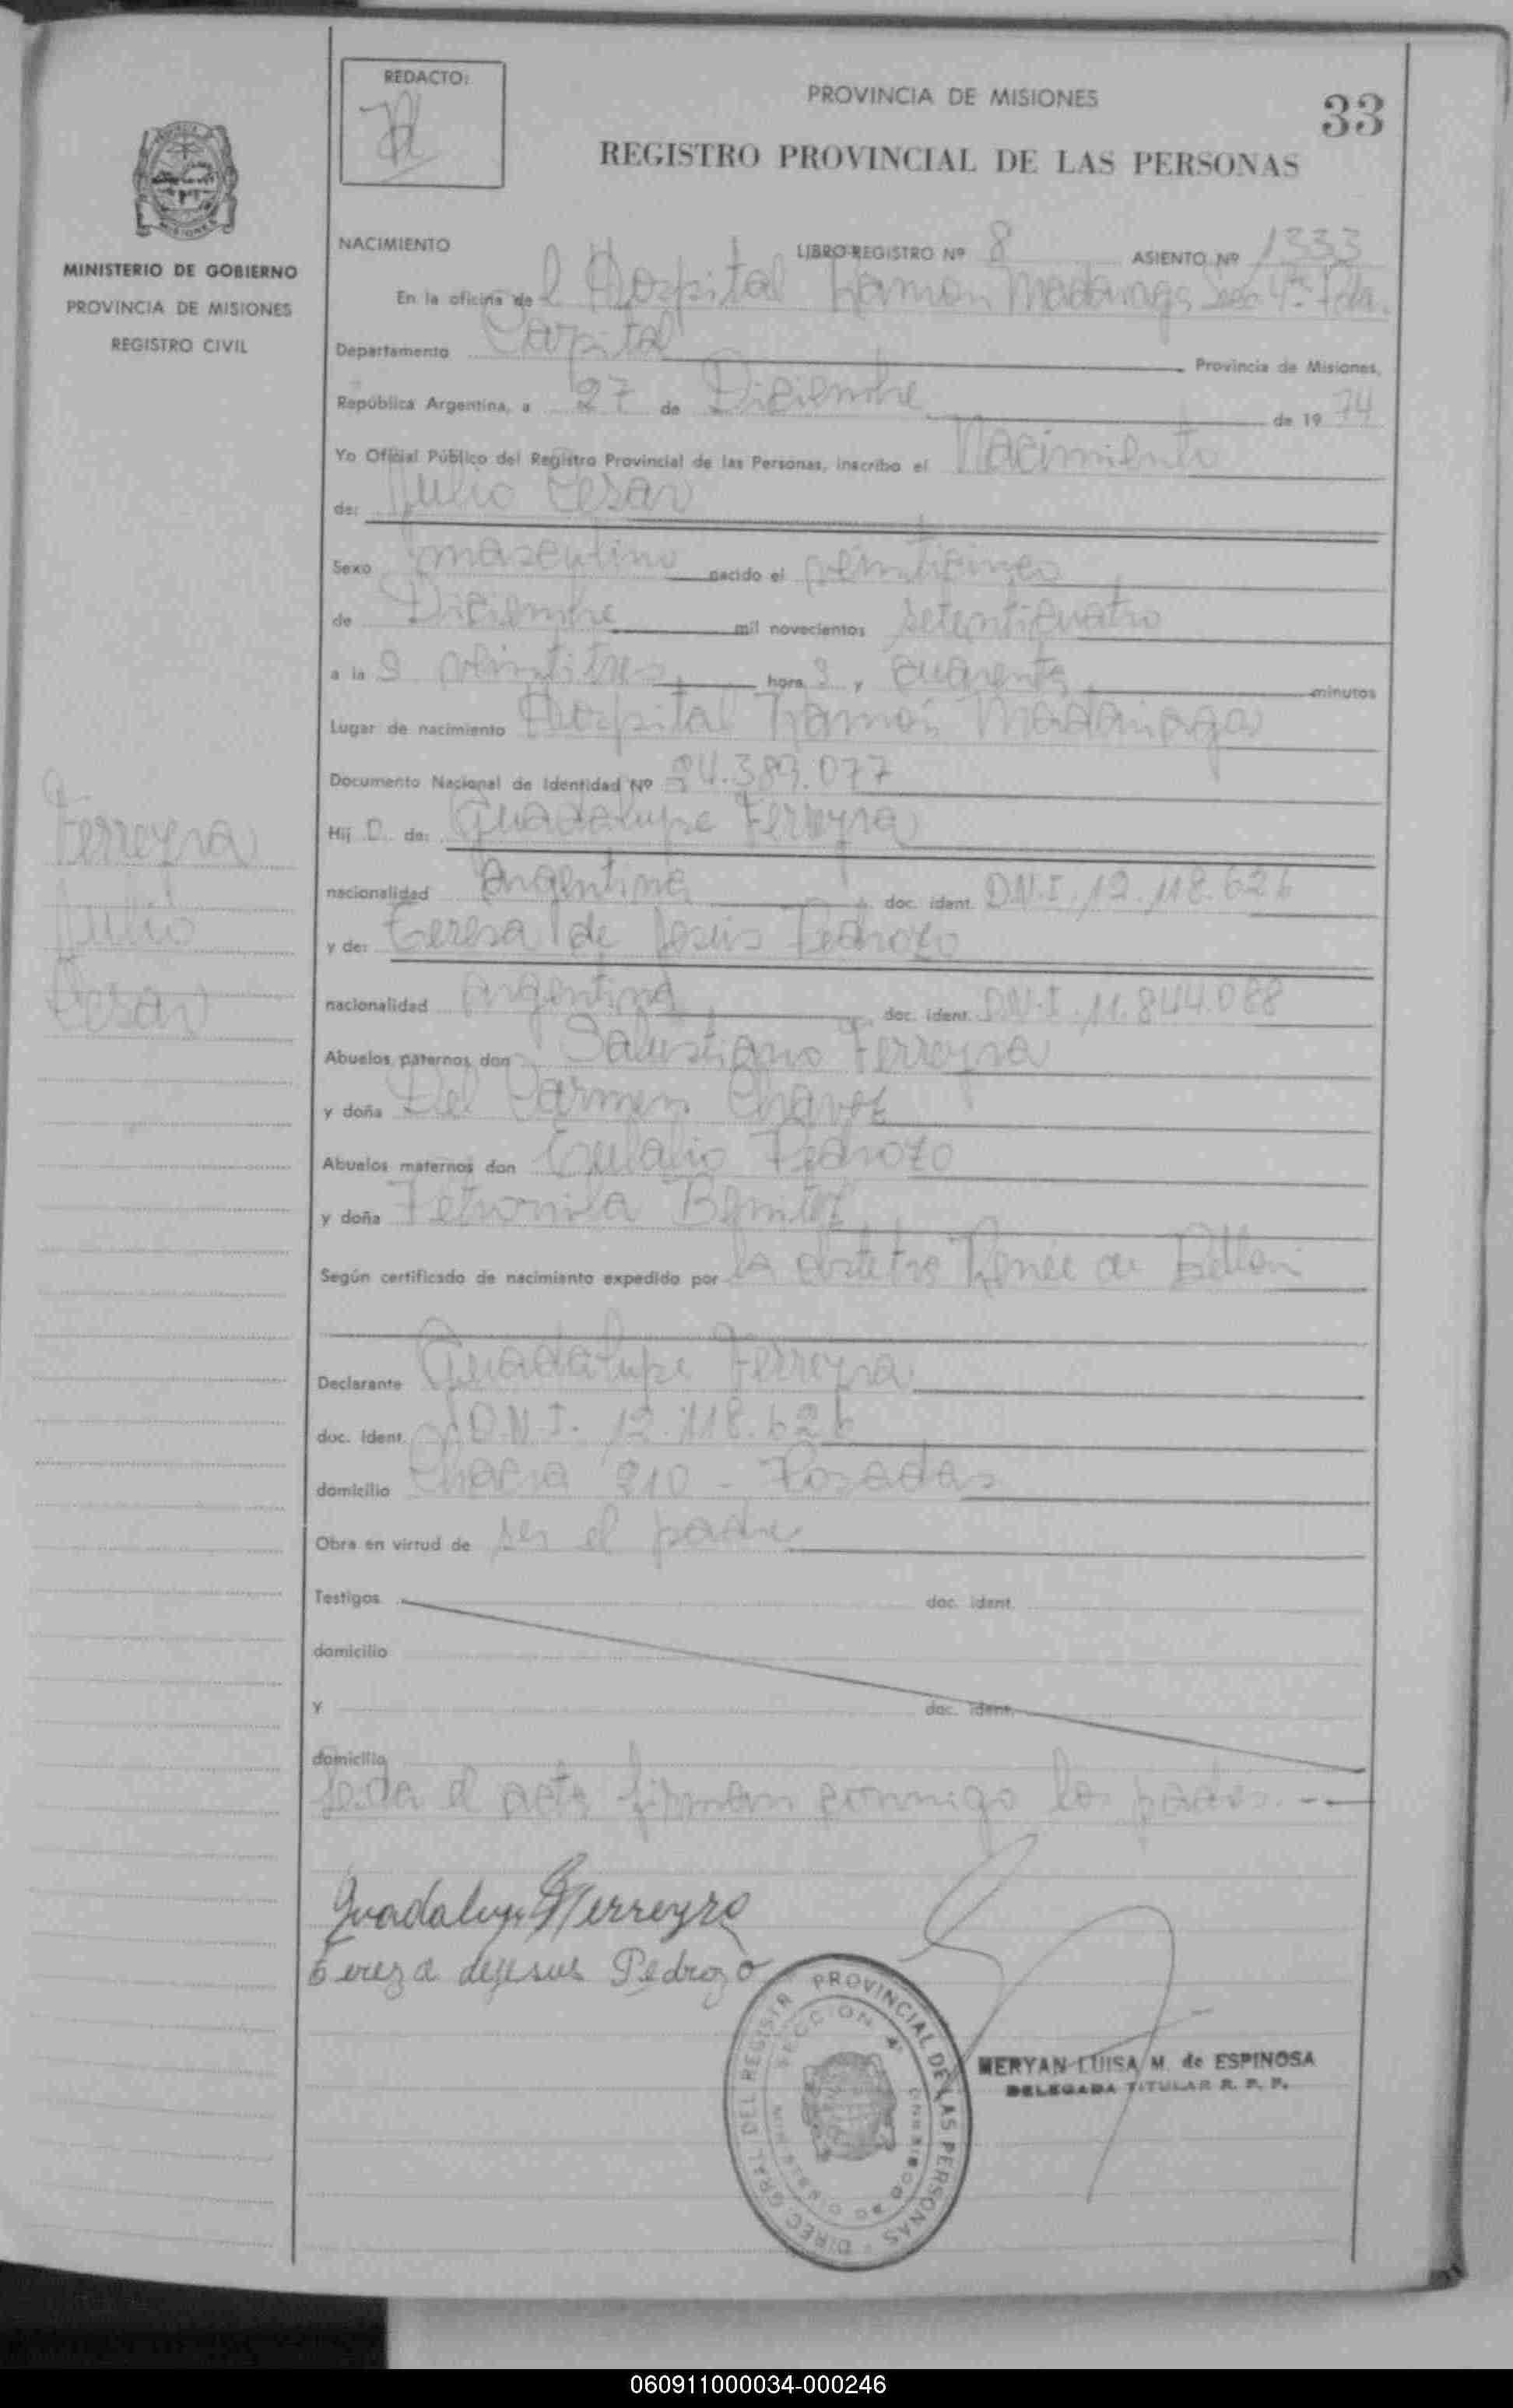 REDACTO:
PROVINCIA DE MISIONES
33
REGISTRO PROVINCIAL DE LAS PERSONAS
MISIONES
MINISTERIO DE GOBIERNO
PROVINCIA DE MISIONES
REGISTRO CIVIL
NACIMIENTO LIBRO-REGISTRO Nº 8 ASIENTO Nº 1333
En la oficina del Hospital Ramón Madariaga Secc 4ª Pdas.
Departamento Capital Provincia de Misiones,
República Argentina, a 27 de Diciembre de 1974
Yo Oficial Público del Registro Provincial de las Personas, inscribo el Nacimiento
de: Julio Cesar
Sexo masculino nacido el veinticinco
de Diciembre mil novecientos setenticuatro
a la s veintitres hora s y cuarenta minutos
Lugar de nacimiento Hospital Ramón Madariaga
Documento Nacional de Identidad Nº 24.389.077
Hij o de: Guadalupe Ferreyra
nacionalidad Argentina doc. ident. D.N.I. 12.118.626
y de: Teresa de Jesús Pedrozo
nacionalidad Argentina doc. ident. D.N.I. 11.844.088
Abuelos paternos don Salustiano Ferreyra
y doña Del Carmen Chavez
Abuelos maternos don Eulalio Pedrozo
y doña Petronila Benitez
Según certificado de nacimiento expedido por la obstetra Renée de
Declarante Guadalupe Ferreyra
doc. ident. D.N.I. 12.118.626
domicilio Chacra 210 - Posadas
Obra en virtud de ser el padre
Testigos doc. ident.
domicilio
y doc. ident.
domicilio
Leida el acta firman conmigo los padres. --
Ferreyra
Julio
Cesar
Guadalupe Ferreyra
Tereza dejesus Pedrozo
DIREC. GRAL. DEL REGISTR PROVINCIAL DE LAS PERSONAS
SECCION 4ª
MERYAN LUISA M. de ESPINOSA
DELEGADA TITULAR R. P. P.
060911000034-000246